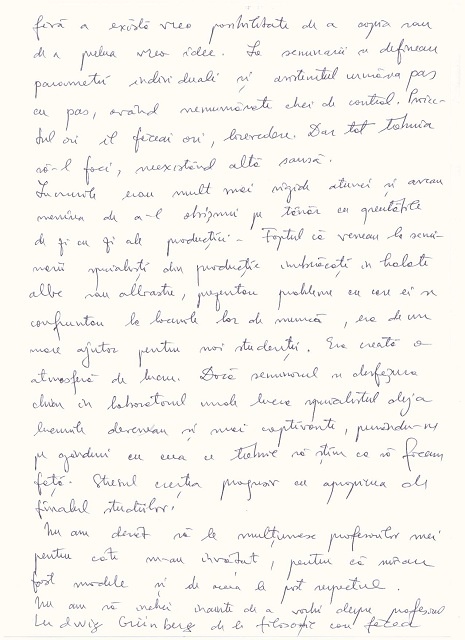 fără a există vreo posibilitate de a copia sau
de a prelua vreo idee. La seminarii se defineau
parametrii individuali și asistentul urmărea pas
cu pas, având nenumărate chei de control. Proiec-
tul ori îl făceai ori, la revedere. Dar tot trebuia
să-l faci, neexistând altă șansă.
Lucrurile erau mult mai rigide atunci și aveau
menirea de a-l obișnui pe tânăr cu greutățile
de zi cu zi ale producției. Faptul că veneau la semi-
narii specialiști din producție îmbrăcați în halate
albe sau albastre, prezentau probleme cu care ei se
confruntau la locurile lor de muncă, era de un
mare ajutor pentru noi studenții. Era creată o
atmosferă de lucru. Dacă seminarul se desfășura
chiar în laboratorul unde lucra specialistul deja
lucrurile deveneau și mai captivante, punându-ne
pe gânduri cu ceea ce trebuie să știm ca să facem
față. Stresul creștea progresiv cu apropierea de
finalul studiilor!
Nu am decât să le mulțumesc profesorilor mei
pentru cât m-au învățat, pentru că mi-au
fost modele și de aceea le port respectul.
Nu am să închei înainte de a vorbi despre profesorul
Ludwig Grünberg de la filosofie care făcea